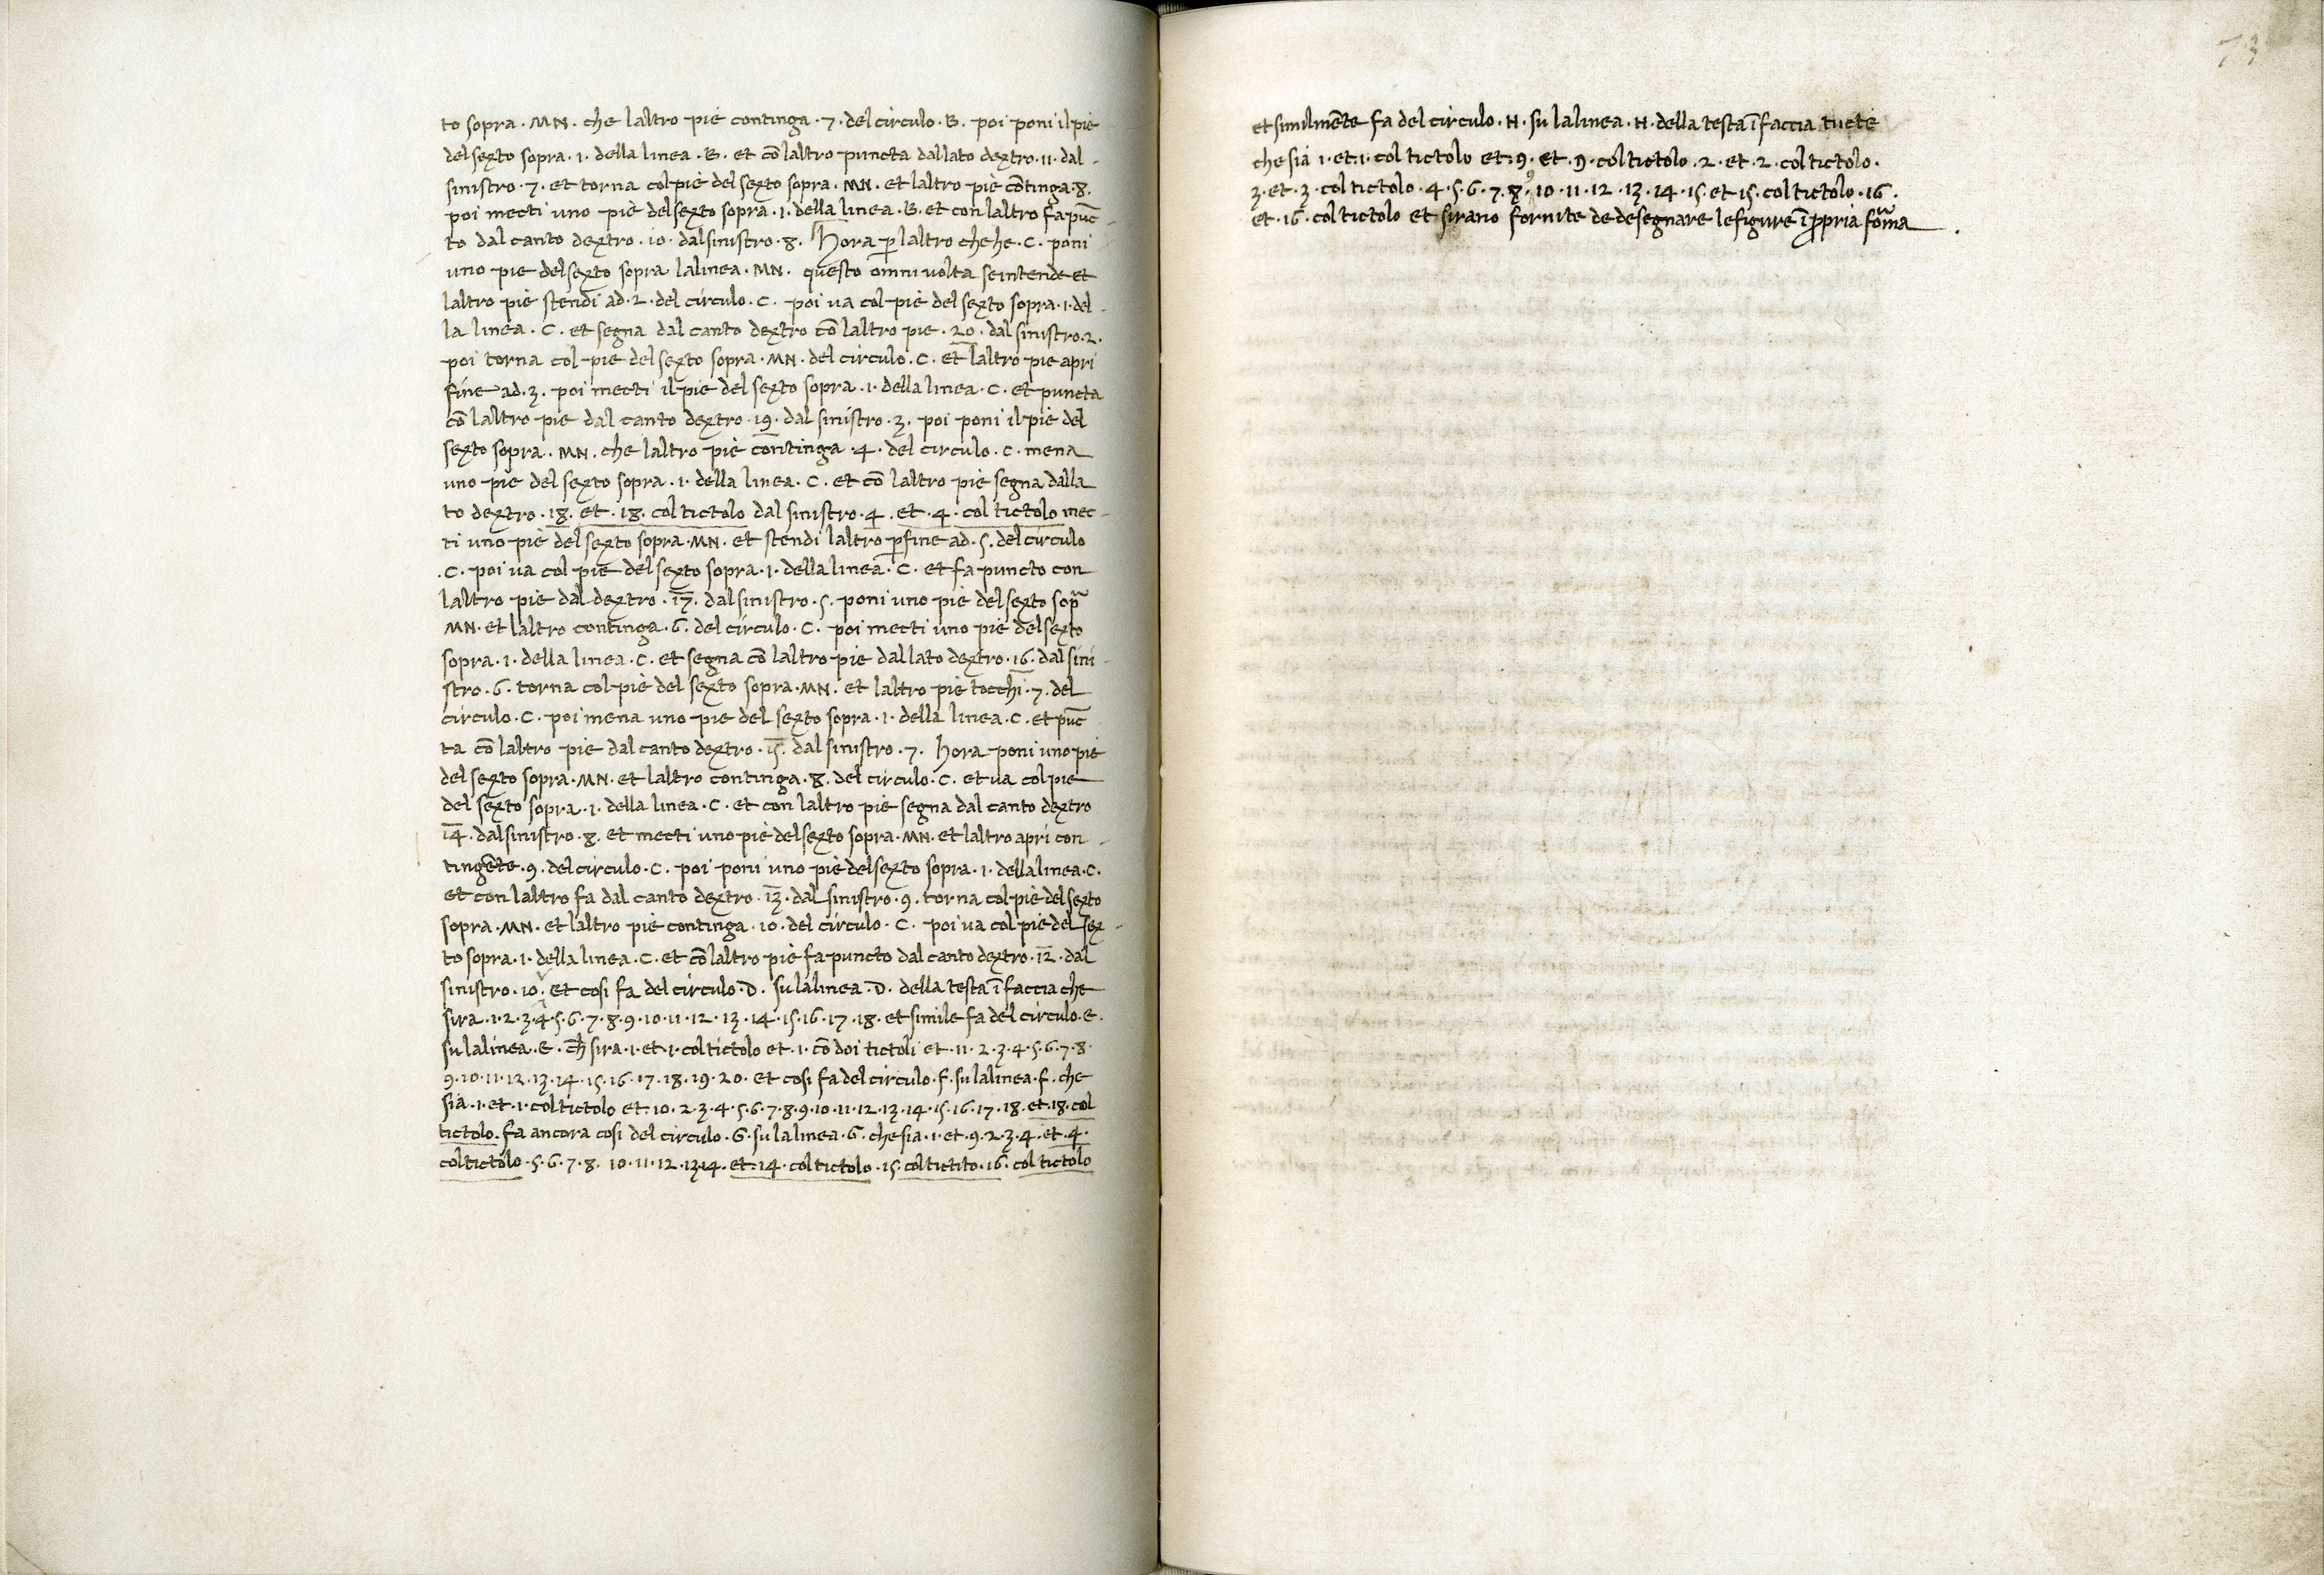 to sopra . MN . che laltro piè continga . 7 . del circulo . B . poi poni il piè
del sexto sopra . 1 . della linea . B . et cõ laltro puncta dallato dextro . 11 . dal -
sinistro . 7 . et torna col piè del sexto sopra . MN . et laltro piè cõtinga . 8 .
poi mecti uno piè del sexto sopra . 1 . della linea . B . et con laltro fa pūc
to dal canto dextro . 10 . dal sinistro . 8 . Hora p̲ laltro che he . C . poni
uno pie del sexto sopra la linea . MN . questo omni volta seintende et
laltro piè stendi ad . 2 . del circulo . C . poi va col piè del sexto sopra . 1 . del -
la linea . C . et segna dal canto dextro cõ laltro pie . 20 . dal sinistro . 2 .
poi torna col pie del sexto sopra . MN . del circulo . C . et laltro pie apri
fine ad . 3 . poi mecti il piè del sexto sopra . 1 . della linea . C . et puncta
cõ laltro pie dal canto dextro . 19 . dal sinistro . 3 . poi poni il piè del
sexto sopra . MN . che laltro piè continga . 4 . del circulo . C . mena
uno piè del sexto sopra . 1 . della linea . C . et cõ laltro piè segna dalla
to dextro . 18 . et . 18 . col tictolo dal sinistro . 4 . et . 4 . col tictolo mec -
ti uno piè del sexto sopra . MN . et stendi laltro p̲fine ad . 5 . del circulo
. C . poi va col piè del sexto sopra . 1 . della linea . C . et fa puncto con
laltro piè dal dextro . 17 . dal sinistro . 5 . poni uno piè del sexto sop̃
MN . et laltro continga . 6 . del circulo . C . poi mecti uno piè del sexto
sopra . 1 . della linea . C . et segna cõ laltro piè dallato dextro . 16 . dal sini -
stro . 6 . torna col piè del sexto sopra . MN . et laltro piè tocchi . 7 . del
circulo . C . poi mena uno pie del sexto sopra . 1 . della linea . C . et pūc
ta cõ laltro piè dal canto dextro . 15 . dal sinistro . 7 . hora poni uno piè
del sexto sopra . MN . et laltro continga . 8 . del circulo . C . et va col pie
del sexto sopra . 1 . della linea . C . et con laltro piè segna dal canto dextro
14 . dal sinistro . 8 . et mecti uno piè del sexto sopra . MN . et laltro apri con -
tingẽte . 9 . del circulo . C . poi poni uno piè del sexto sopra . 1 . della linea . C .
et con laltro fa dal canto dextro . 13 . dal sinistro . 9 . torna col piè del sexto
sopra . MN . et laltro piè continga . 10 . del circulo . C . poi va col piè del sex -
to sopra . 1 . della linea . C . et cõ laltro piè fa puncto dal canto dextro . 12 . dal
sinistro . 10 . et cosi fa del circulo . D . su la linea . D . della testa ĩ faccia che
sira . 1 . 2 . 3 . 4 . 5 . 6 . 7 . 8 . 9 . 10 . 11 . 12 . 13 . 14 . 15 . 16 . 17 . 18 . et simile fa del circulo . E .
su la linea . E . ch̃ sira . 1 . et . 1 . col tictolo et . 1 . cõ doi tictoli et . 11 . 2 . 3 . 4 . 5 . 6 . 7 . 8 .
9 . 10 . 11 . 12 . 13 . 14 . 15 . 16 . 17 . 18 . 19 . 20 . et cosi fa del circulo . F . su la linea . F . che
sia . 1 . et . 1 . col tictolo et . 10 . 2 . 3 . 4 . 5 . 6 . 7 . 8 . 9 . 10 . 11 . 12 . 13 . 14 . 15 . 16 . 17 . 18 . et . 18 . col
tictolo . fa ancora cosi del circulo . G . su la linea . G . che sia . 1 . et . 9 . 2 . 3 . 4 . et . 4 .
col tictolo . 5 . 6 . 7 . 8 . 10 . 11 . 12 . 13 . 14 . et . 14 . col tictolo . 15 . col tictito . 16 . col tictolo
73
et similmẽte fa del circulo . H . su la linea . H . della testa ĩ faccia tucte
che sia 1 . et . 1 . col tictolo et . 9 . et . 9 . col tictolo . 2 . et . 2 . col tictolo .
3 . et . 3 . col tictolo . 4 . 5 . 6 . 7 . 8 . 9 . 10 . 11 . 12 . 13 . 14 . 15 . et 15 . col tictolo . 16 .
et . 16 . col tictolo et sirano fornite de desegnare le figure ĩ ꝓpria foma .